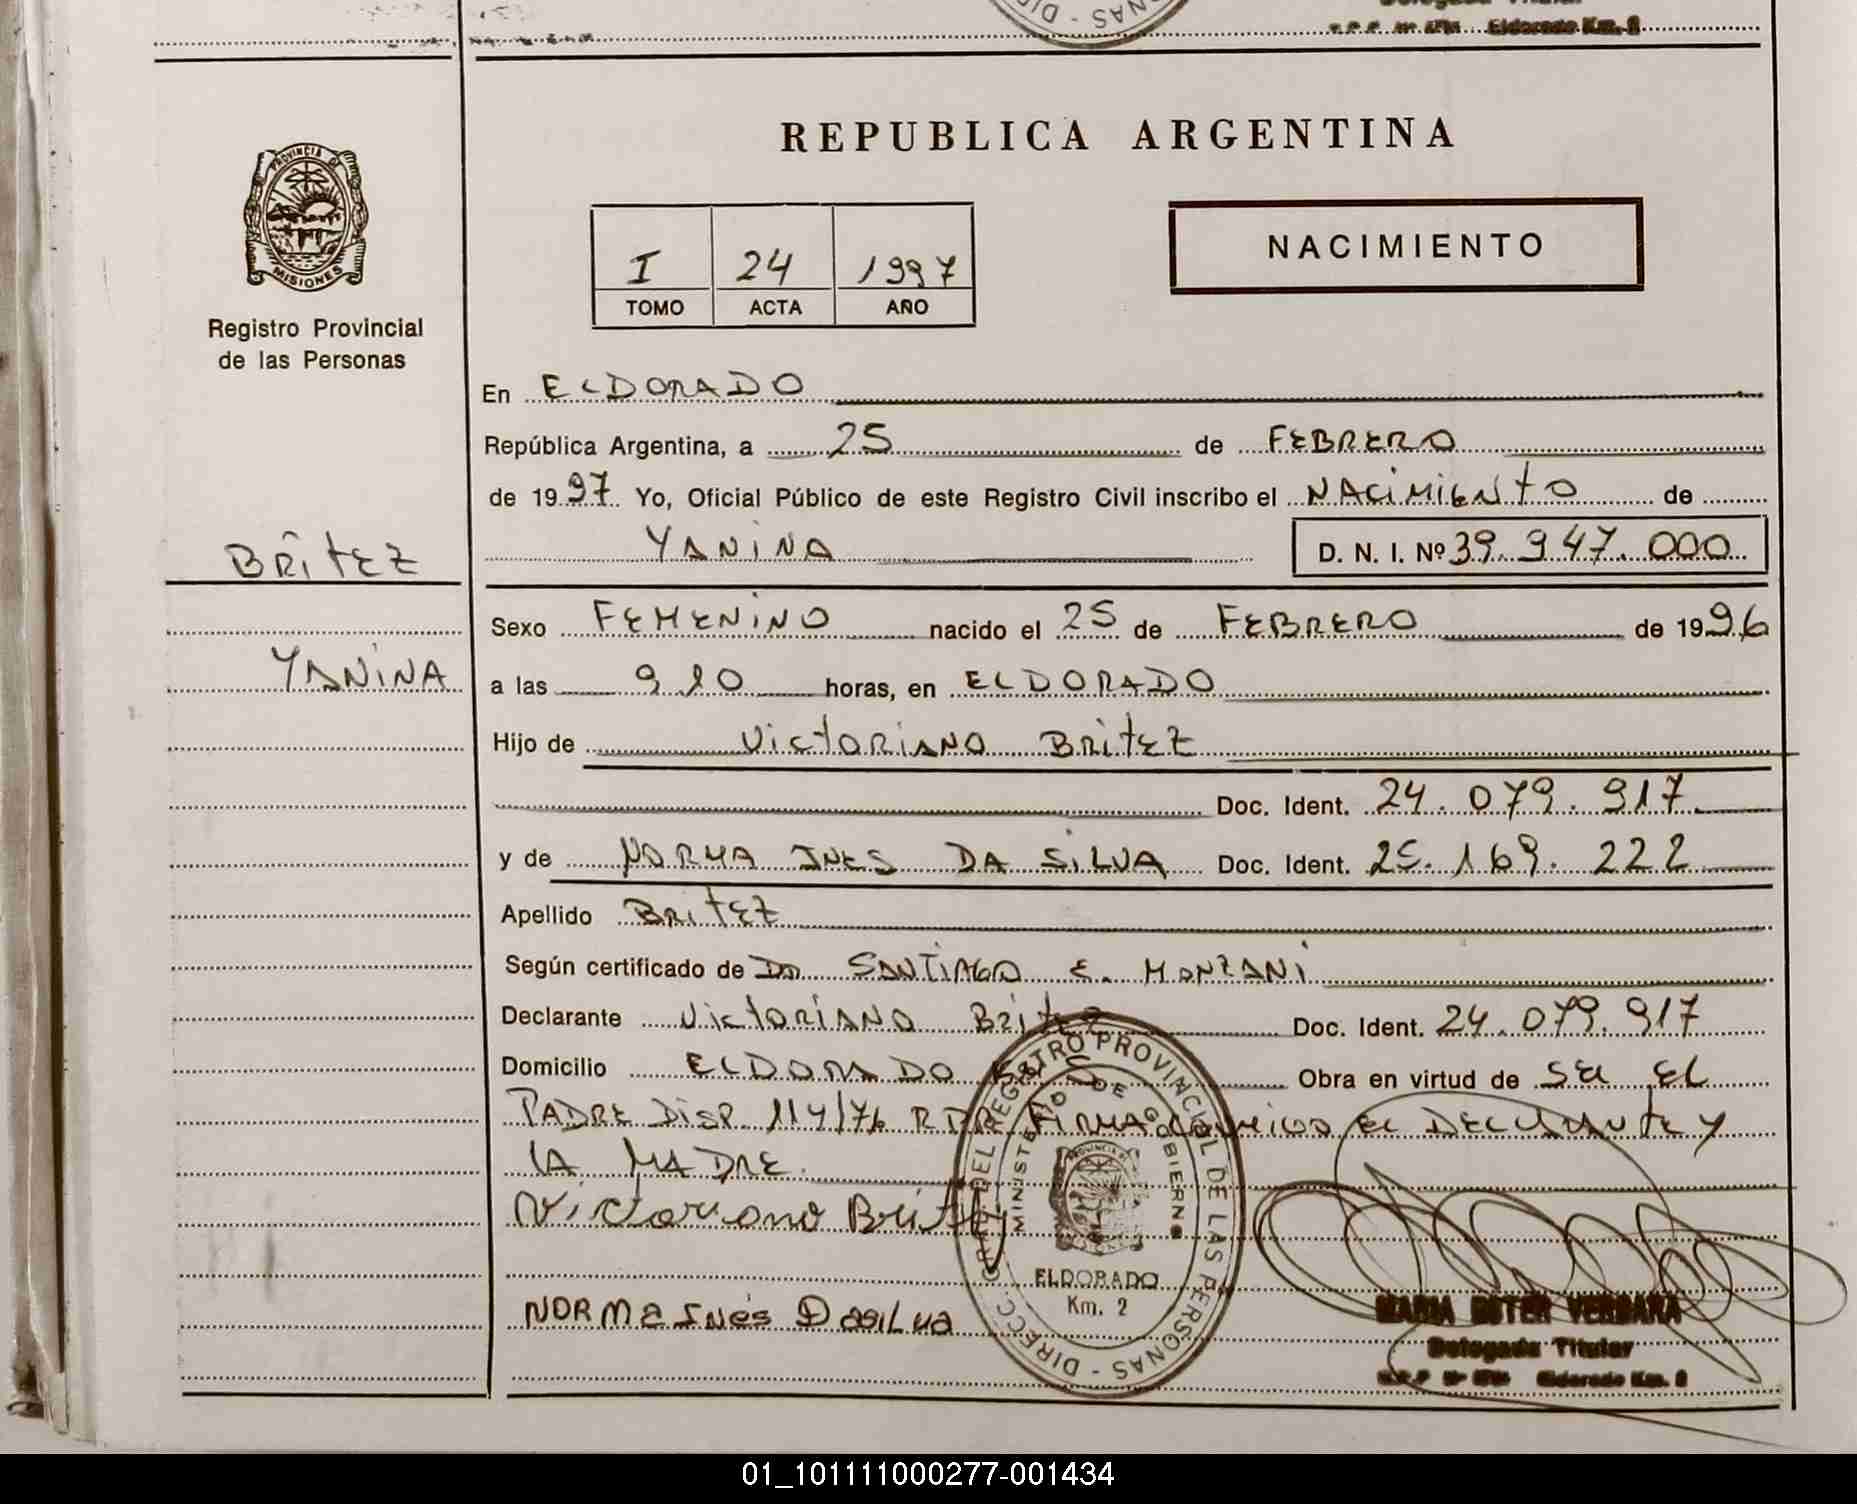 REPUBLICA ARGENTINA
PROVINCIA DE
MISIONES
Registro Provincial
de las Personas
I 24 1997
TOMO ACTA AÑO
NACIMIENTO
En ELDORADO
República Argentina, a 25 de FEBRERO
de 1997 Yo, Oficial Público de este Registro Civil inscribo el NACIMIENTO de
YANINA D. N. I. Nº 39.947.000
BRITEZ
YANINA
Sexo FEMENINO nacido el 25 de FEBRERO de 1996
a las 9 20 horas, en ELDORADO
Hijo de VICTORIANO BRITEZ
Doc. Ident. 24.079.917
y de NORMA INES DA SILVA Doc. Ident. 25.169.222
Apellido BRITEZ
Según certificado de DR SANTIAGO E. MANZANI
Declarante VICTORIANO BRITEZ Doc. Ident. 24.079.917
Domicilio ELDORADO Obra en virtud de SER EL
PADRE DISP. 114/76 FIRMA CONMIGO EL DECLARANTE Y
LA MADRE.
Victoriano Britez
NORMA INés DasiLva
DIRECC. GRAL. DEL REGISTRO PROVINCIAL DE LAS PERSONAS
MINISTERIO DE GOBIERNO
ELDORADO
Km. 2
MARIA ESTER VERBARA
Delegada Titular
Eldorado Km. 2
01_101111000277-001434